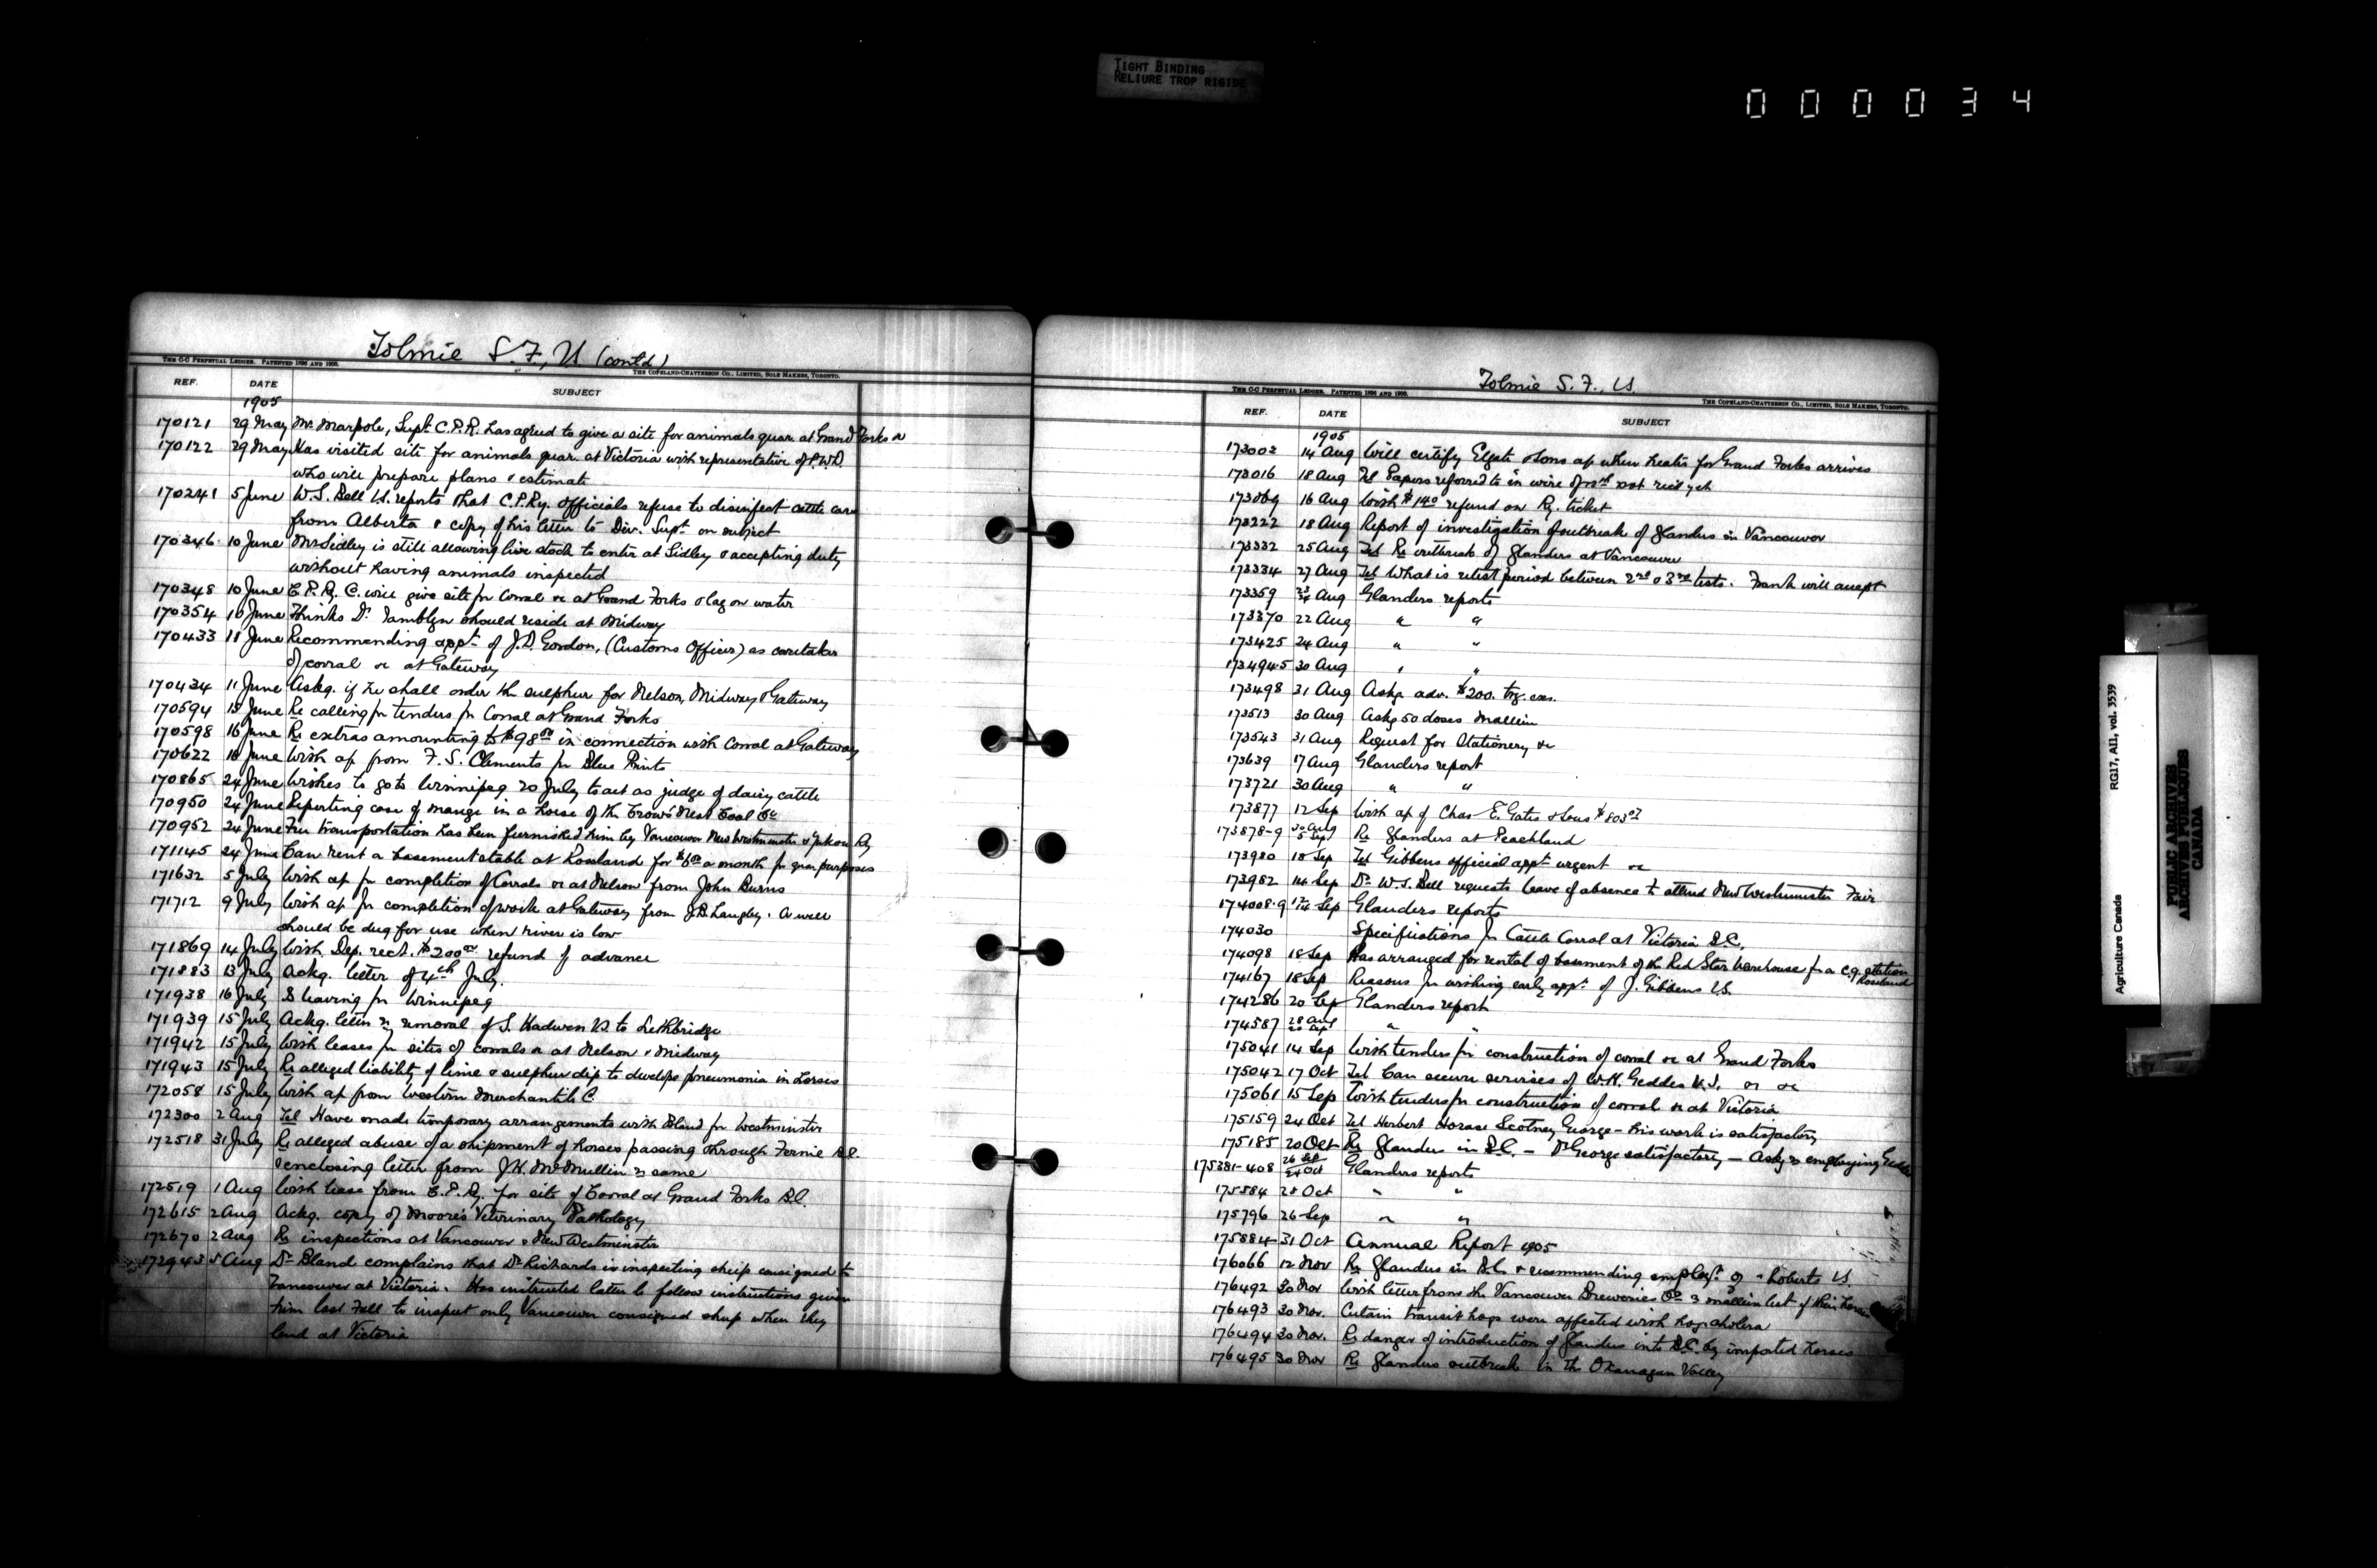 TIGHT BINDING
RELIURE TROP RIGIDE
000034
Tolmie S. F., VS (contd)
THE C-C PERPETUAL LEDGER. PATENTED 1896 AND 1900.
THE COPELAND-CHATTERSON CO., LIMITED, SOLE MAKERS, TORONTO.
REF. DATE SUBJECT
1905
170121 29 May Mr. Marpole, Supt. C.P.R. has agreed to give a site for animals quar. at Grand Forks &c
170122 29 May Has visited site for animals quar. at Victoria with representative of P.W.D.
who will prepare plans & estimate
170241 5 June W.S. Bell VS. reports that C.P.Ry. officials refuse to disinfect cattle cars
from Alberta & copy of his letter to Div. Supt. on subject
170346 10 June Mr Sidley is still allowing live stock to enter at Sidley & accepting duty
without having animals inspected
170348 10 June C.P.Ry. C. will give site for Corral &c at Grand Forks & lay on water
170354 10 June Thinks Dr. Tamblyn should reside at Midway
170433 11 June Recommending appt. of J.D. Gordon, (Customs Officer) as caretaker
of corral &c at Gateway
170434 11 June Askg. if he shall order the sulphur for Nelson, Midway & Gateway
170594 15 June Re calling for tenders for Corral at Grand Forks
170598 16 June Re extras amounting to $98.00 in connection with Corral at Gateway
170622 18 June With a/c from F. S. Clements for Blue Prints
170865 24 June Wishes to go to Winnipeg 20 July to act as judge of dairy cattle
170950 24 June Reporting case of mange in a horse of the Crow's Nest Coal Co
170952 24 June Free transportation has been furnished him by Vancouver New Westminster & Yukon Ry
171145 24 June Can rent a basement stable at Rossland for $6.00 a month for quar purposes
171632 5 July With a/c for completion of Corrals &c at Nelson from John Burns
171712 9 July With a/c for completion of work at Gateway from J.B. Langley. A well
should be dug for use when river is low
171869 14 July With Dep. rect. $200.00 refund of advance
171883 13 July Ackg. letter of 4th July.
171938 16 July Is leaving for Winnipeg
171939 15 July Ackg. letter re removal of S. Hadwen VS to Lethbridge
171942 15 July With leases for sites of corrals &c at Nelson & Midway
171943 15 July Re alleged liability of lime & sulphur dip to develope pneumonia in horses
172058 15 July With a/c from Western Merchantile C.
172300 2 Aug Tel Have made temporary arrangements with Bland for Westminster
172518 31 July Re alleged abuse of a shipment of horses passing through Fernie B.C.
& enclosing letter from J.H. McMullin re same
172519 1 Aug With lease from C.P.Ry. for site of Corral at Grand Forks B.C.
172615 2 Aug Ackg. copy of Moore's Veterinary Pathology
172670 2 Aug Re inspections at Vancouver & New Westminster
172943 5 Aug Dr Bland complains that Dr Richards is inspecting sheep consigned to
Vancouver at Victoria. Has instructed latter to follow instructions given
him last Fall to inspect only Vancouver consigned sheep when they
land at Victoria
Tolmie S. F., VS.
THE C-C PERPETUAL LEDGER. PATENTED 1896 AND 1900.
THE COPELAND-CHATTERSON CO., LIMITED, SOLE MAKERS, TORONTO.
REF. DATE SUBJECT
1905
173002 14 Aug Will certify Elgate & Sons a/c when heater for Grand Forks arrives
173016 18 Aug Tel Papers referred to in wire of not recd yet
173069 16 Aug With $1.40 refund on Ry. ticket
173222 18 Aug Report of investigation of outbreak of glanders in Vancouver
173332 25 Aug Tel Re outbreak of glanders at Vancouver
173334 27 Aug Tel What is retest period between 2nd & 3rd tests. Frank will accept
173359 Aug Glanders reports
173370 22 Aug " "
173425 24 Aug " "
173494-5 30 Aug " "
173498 31 Aug Askg adv. $200. trg. exs.
173513 30 Aug Askg 50 doses mallein
173543 31 Aug Request for Stationery &c
173639 17 Aug Glanders report
173721 30 Aug " "
173877 12 Sep With a/c of Chas E. Gates & Sons $803
173878-9 30 Aug 5 Sep Re Glanders at Peachland
173980 18 Sep Tel Gibbens official appt. urgent &c
173982 14 Sep Dr W.S. Bell requests leave of absence to attend New Westminster Fair
174008-9 Sep Glanders reports
174030 Specifications for Cattle Corral at Victoria B.C.
174098 18 Sep Has arranged for rental of basement of the Red Star Warehouse for a c.q. station
Rossland
174167 18 Sep Reasons for wishing early appt. of J. Gibbens VS.
174286 20 Sep Glanders report
174587 28 Aug 20 Sep " "
175041 14 Sep With tenders for construction of corral &c at Grand Forks
175042 17 Oct Tel Can secure services of W.H. Geddes V.S. &c
175061 15 Sep With tenders for construction of corral &c at Victoria
175159 24 Oct Tel Herbert Horace Scotney George - his work is satisfactory
175185 20 Oct Re Glanders in B.C. - Dr George satisfactory - Askg re employing Geddes
175381-408 26 Sep 24 Oct Glanders reports
175584 28 Oct " "
175796 26 Sep " "
175884 31 Oct Annual Report 1905
176066 12 Nov Re Glanders in B.C. & recommending employt. of - Roberts VS.
176492 30 Nov With letter from the Vancouver Breweries Co re mallein test of their horses
176493 30 Nov. Certain transit hogs were affected with hog cholera
176494 30 Nov. Re danger of introduction of glanders into B.C. by imported horses
176495 30 Nov Re Glanders outbreak in the Okanagan Valley
Agriculture Canada RG17, AI1, vol. 3539
PUBLIC ARCHIVES
ARCHIVES PUBLIQUES
CANADA